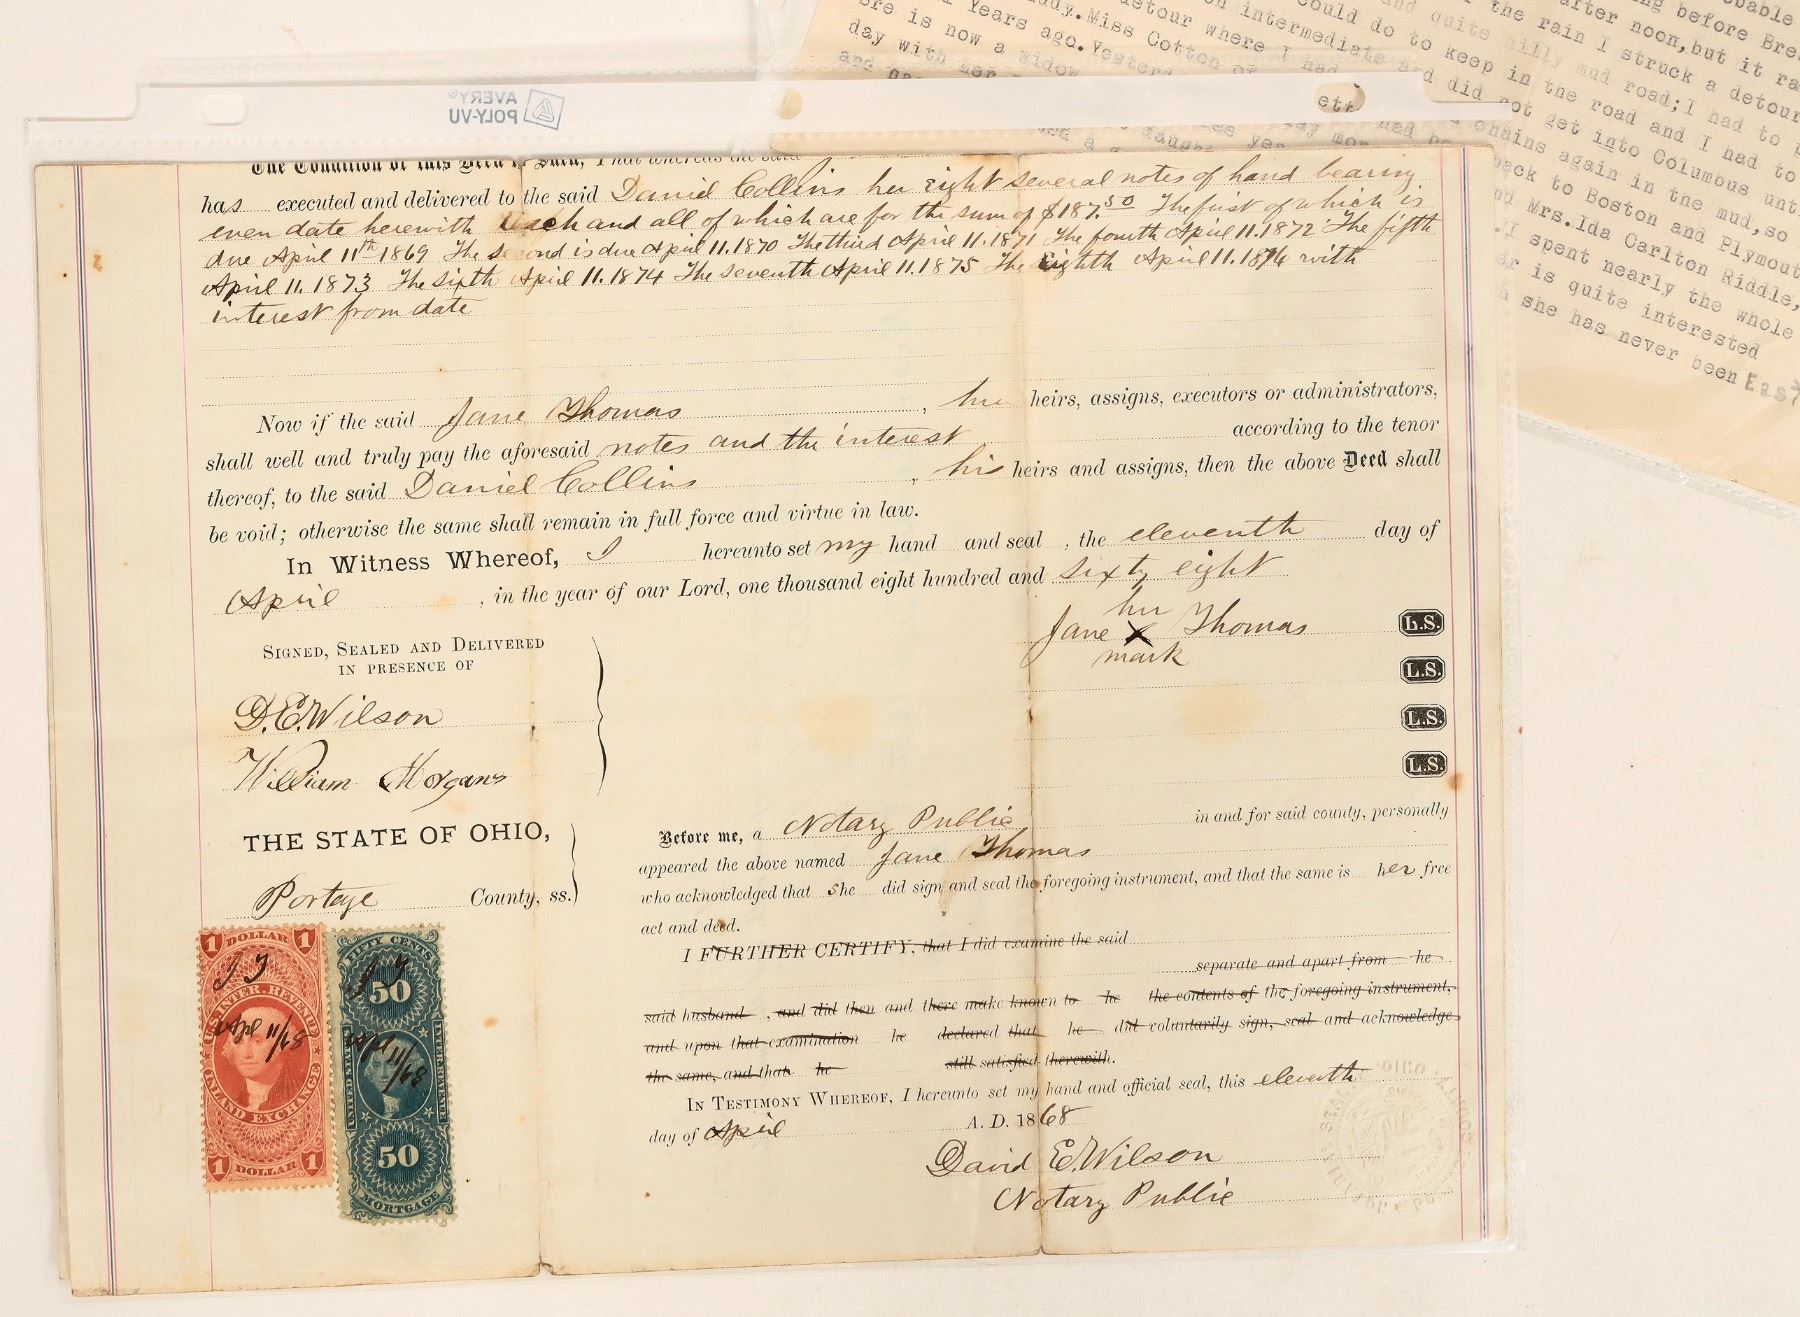 AVERY
POLY-VU
The Condition of this Deed is Such, That whereas the said
has executed and delivered to the said Daniel Collins her eight several notes of hand bearing
even date herewith each and all of which are for the sum of $187.50 The first of which is
due April 11th 1869 The second is due April 11.1870 The third April 11.1871 The fourth April 11.1872 The fifth
April 11.1873 The sixth April 11.1874 The seventh April 11.1875 The Eighth April 11.1876 with
interest from date
Now if the said Jane Thomas, her heirs, assigns, executors or administrators,
shall well and truly pay the aforesaid notes and the interest according to the tenor
thereof, to the said Daniel Collins, his heirs and assigns, then the above Deed shall
be void; otherwise the same shall remain in full force and virtue in law.
In Witness Whereof, I hereunto set my hand and seal, the eleventh day of
April, in the year of our Lord, one thousand eight hundred and sixty eight
her
Jane X Thomas L.S.
mark
L.S.
L.S.
L.S.
SIGNED, SEALED AND DELIVERED
IN PRESENCE OF
D.E. Wilson
William Morgans
THE STATE OF OHIO,
Portage County, ss.
Before me, a Notary Public in and for said county, personally
appeared the above named Jane Thomas
who acknowledged that she did sign and seal the foregoing instrument, and that the same is her free
act and deed.
I FURTHER CERTIFY, that I did examine the said
separate and apart from he
said husband, and did then and there make known to he the contents of the foregoing instrument,
and upon that examination he declared that he did voluntarily sign, seal and acknowledge
the same, and that he still satisfied therewith.
IN TESTIMONY WHEREOF, I hereunto set my hand and official seal, this eleventh
day of April A. D. 1868
David E. Wilson
Notary Public
1 DOLLAR 1
J T
U.S. INTER. REVENUE
Apl 11/68
INLAND EXCHANGE
1 DOLLAR 1
FIFTY CENTS
J T
50
UNITED STATES INTER REVENUE
Apl 11/68
50
MORTGAGE
before Bre
after noon, but it ra
the rain I struck a detour
and quite hilly mud road; I had to
could do to keep in the road and I had to
intermediate and did not get into Columbus unt
detour where I had chains again in the mud, so
Miss Cotton back to Boston and Plymout
years ago. Yesterd Mrs. Ida Carlton Riddle,
re is now a widow I spent nearly the whole
day with her is quite interested
she has never been East